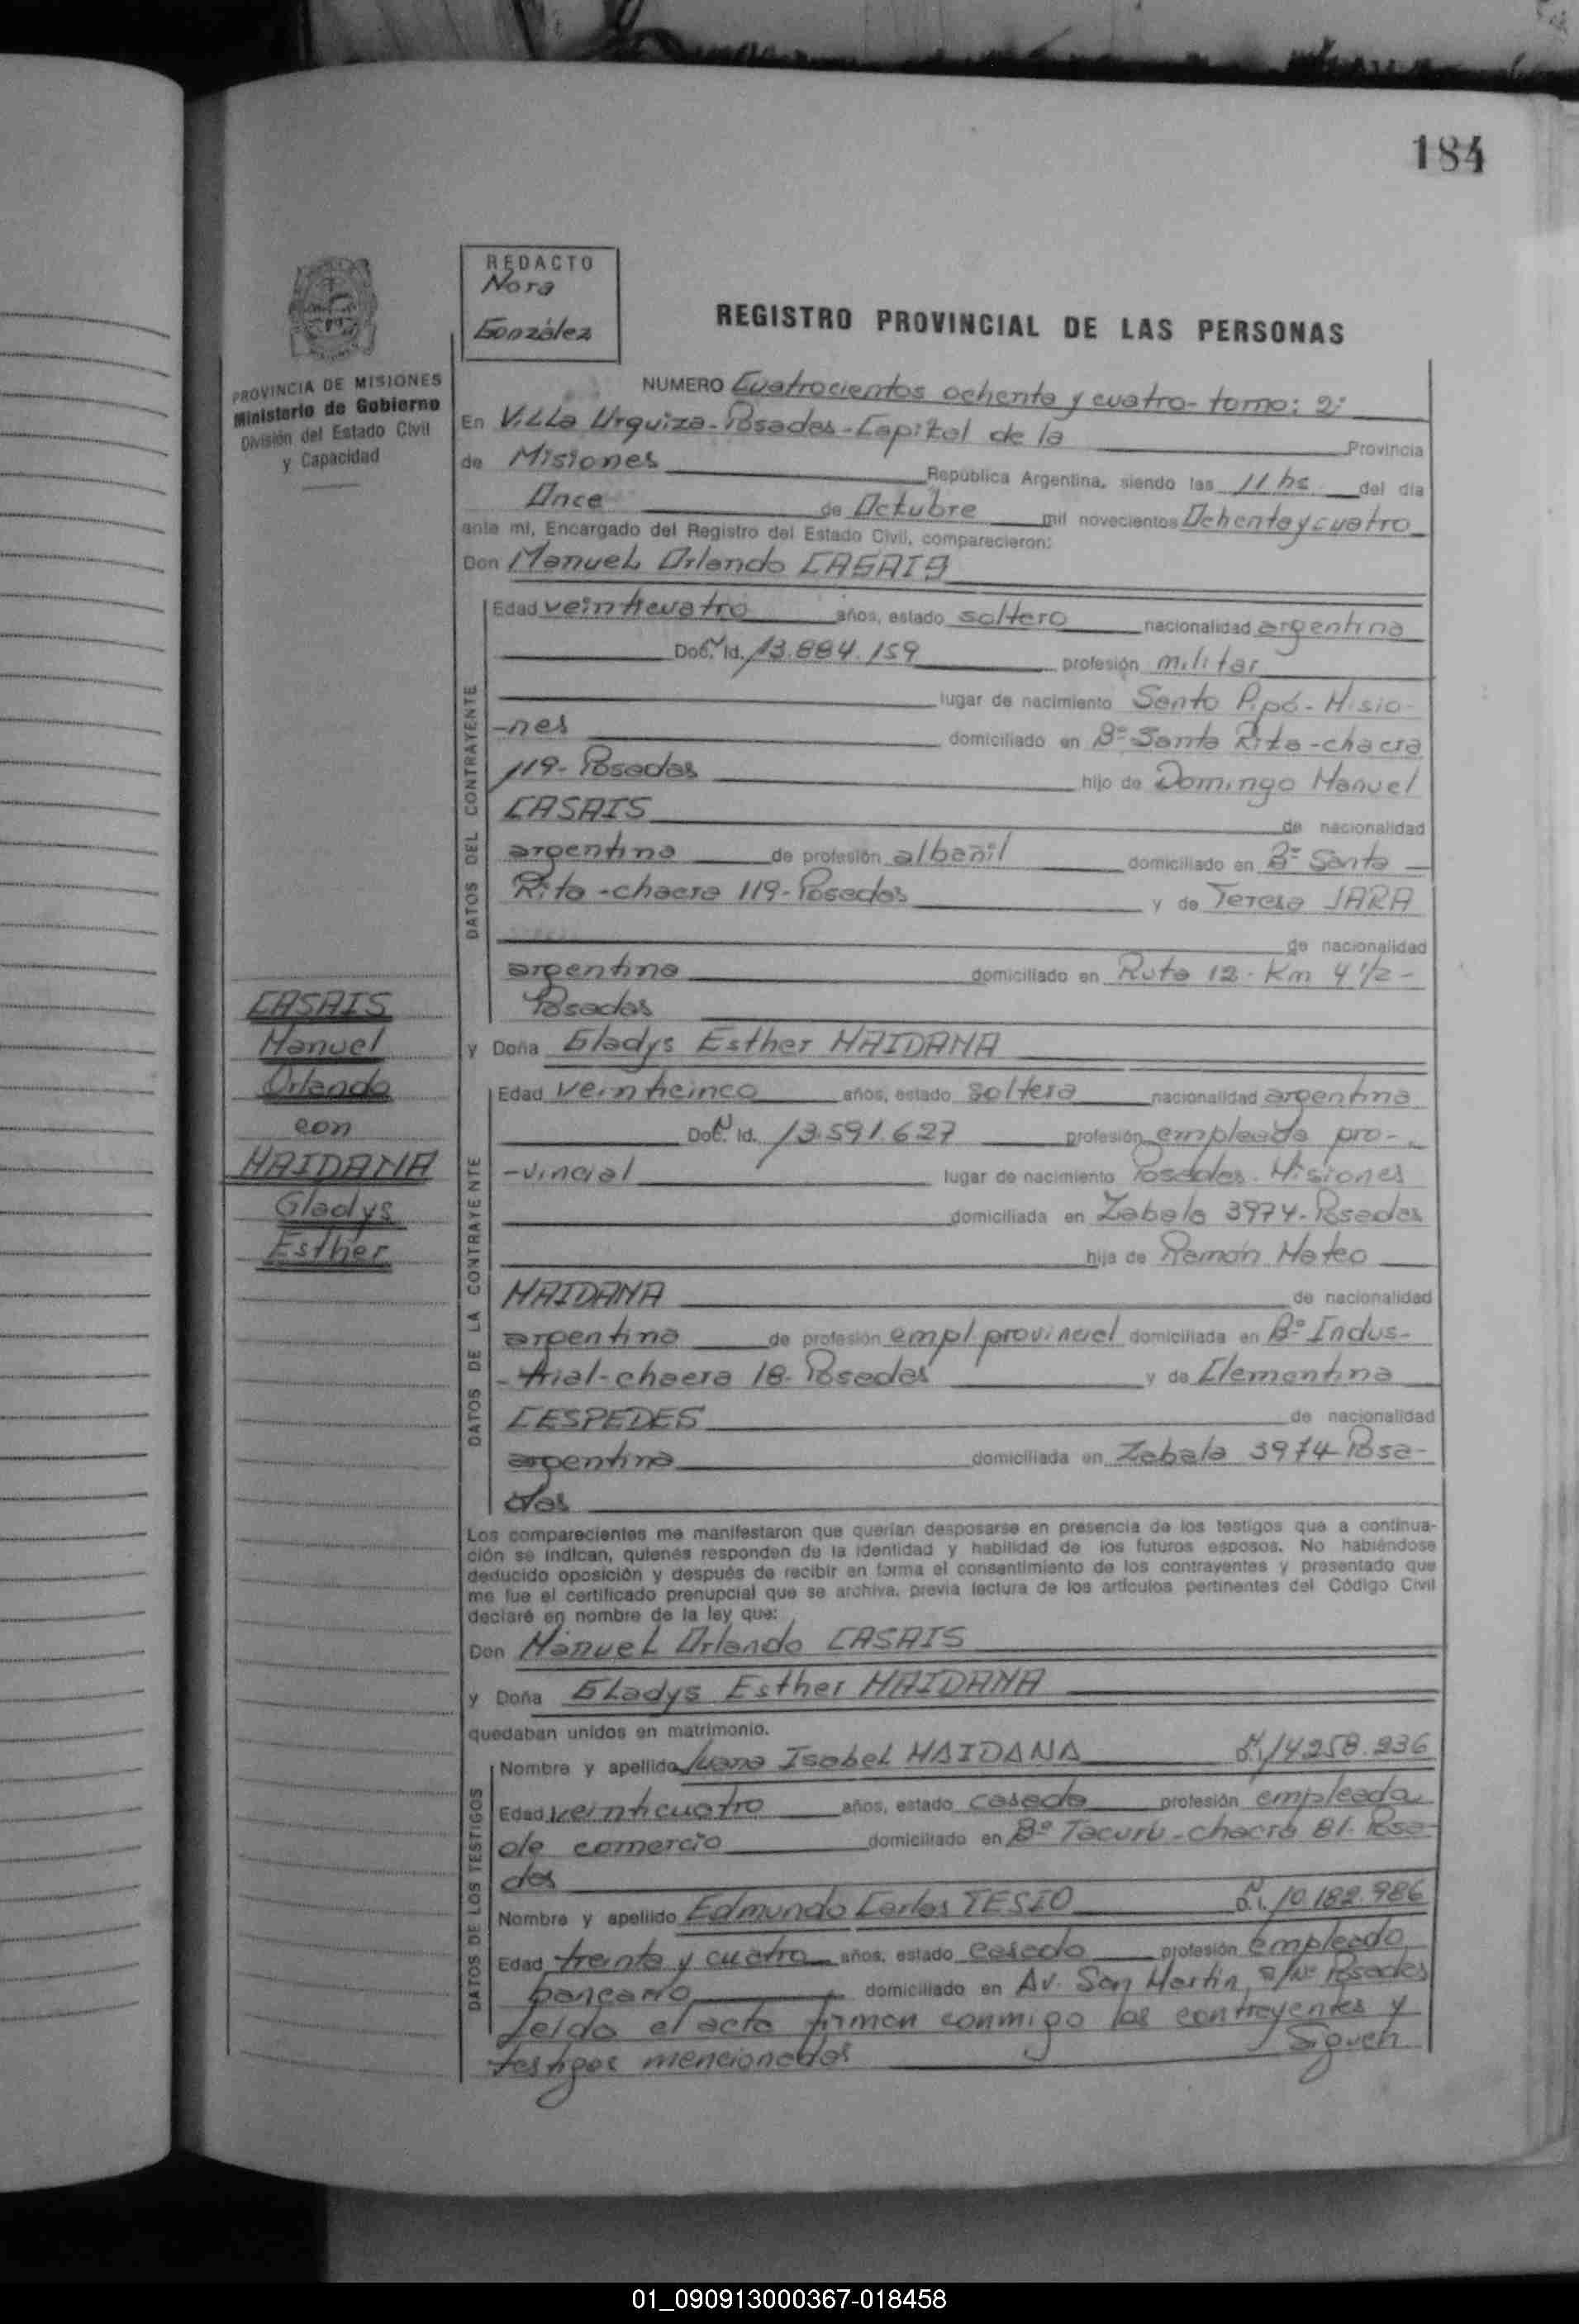 184
REDACTO
Nora
González
REGISTRO PROVINCIAL DE LAS PERSONAS
PROVINCIA DE MISIONES
Ministerio de Gobierno
División del Estado Civil
y Capacidad
NUMERO Cuatrocientos ochenta y cuatro - tomo: 2:
En Villa Urquiza - Posadas - Capital de la Provincia
de Misiones República Argentina, siendo las 11 hs del día
Once de Octubre mil novecientos Ochenta y cuatro
ante mi, Encargado del Registro del Estado Civil, comparecieron:
Don Manuel Orlando CASAIS
DATOS DEL CONTRAYENTE
Edad veinticuatro años, estado soltero nacionalidad argentina
Doc. Id. 13.884.159 profesión militar
lugar de nacimiento Santo Pipó - Misio-
-nes domiciliado en Bº Santa Rita - chacra
119 - Posadas hijo de Domingo Manuel
CASAIS de nacionalidad
argentina de profesión albañil domiciliado en Bº Santa
Rita - chacra 119 - Posadas y de Teresa JARA
de nacionalidad
argentina domiciliado en Ruta 12 - Km 4 1/2 -
Posadas
CASAIS
Manuel
Orlando
con
MAIDANA
Gladys
Esther
y Doña Gladys Esther MAIDANA
DATOS DE LA CONTRAYENTE
Edad veinticinco años, estado soltera nacionalidad argentina
Doc. Id. 13.591.627 profesión empleada pro-
-vincial lugar de nacimiento Posadas - Misiones
domiciliada en Zabala 3974 - Posadas
hija de Ramón Mateo
MAIDANA de nacionalidad
argentina de profesión empl. provincial domiciliada en Bº Indus-
- trial - chacra 18 - Posadas y de Clementina
CESPEDES de nacionalidad
argentina domiciliada en Zabala 3974 Posa-
das
Los comparecientes me manifestaron que querían desposarse en presencia de los testigos que a continua-
ción se indican, quienes responden de la identidad y habilidad de los futuros esposos. No habiéndose
deducido oposición y después de recibir en forma el consentimiento de los contrayentes y presentado que
me fue el certificado prenupcial que se archiva, previa lectura de los artículos pertinentes del Código Civil
declaré en nombre de la ley que:
Don Manuel Orlando CASAIS
y Doña Gladys Esther MAIDANA
quedaban unidos en matrimonio.
DATOS DE LOS TESTIGOS
Nombre y apellido Juana Isabel MAIDANA 14.258.236
Edad veinticuatro años, estado casada profesión empleada
de comercio domiciliado en Bº Tacurú - chacra 81. Posa-
das
Nombre y apellido Edmundo Carlos TESIO 10.182.986
Edad treinta y cuatro años, estado casado profesión empleado
bancario domiciliado en Av. San Martín, s/Nº Posadas
Leída el acta firman conmigo los contrayentes y
testigos mencionados Siguen
01_090913000367-018458